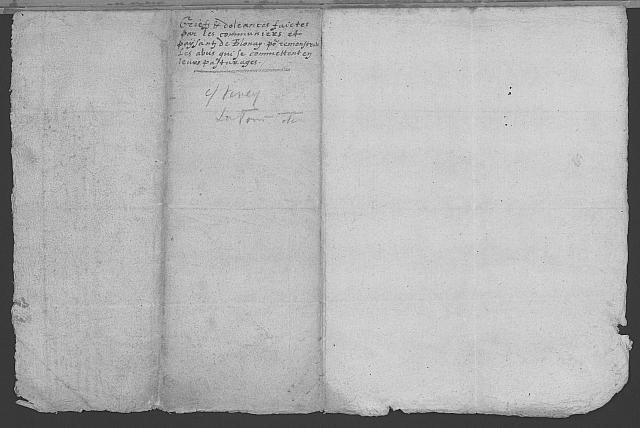 Griefs et doleances faictes
par les communiers et
paysants de Blonay po remonstrer
les abus qui se commettent en
leurs pasturages.
c/ Vevey
La Tour